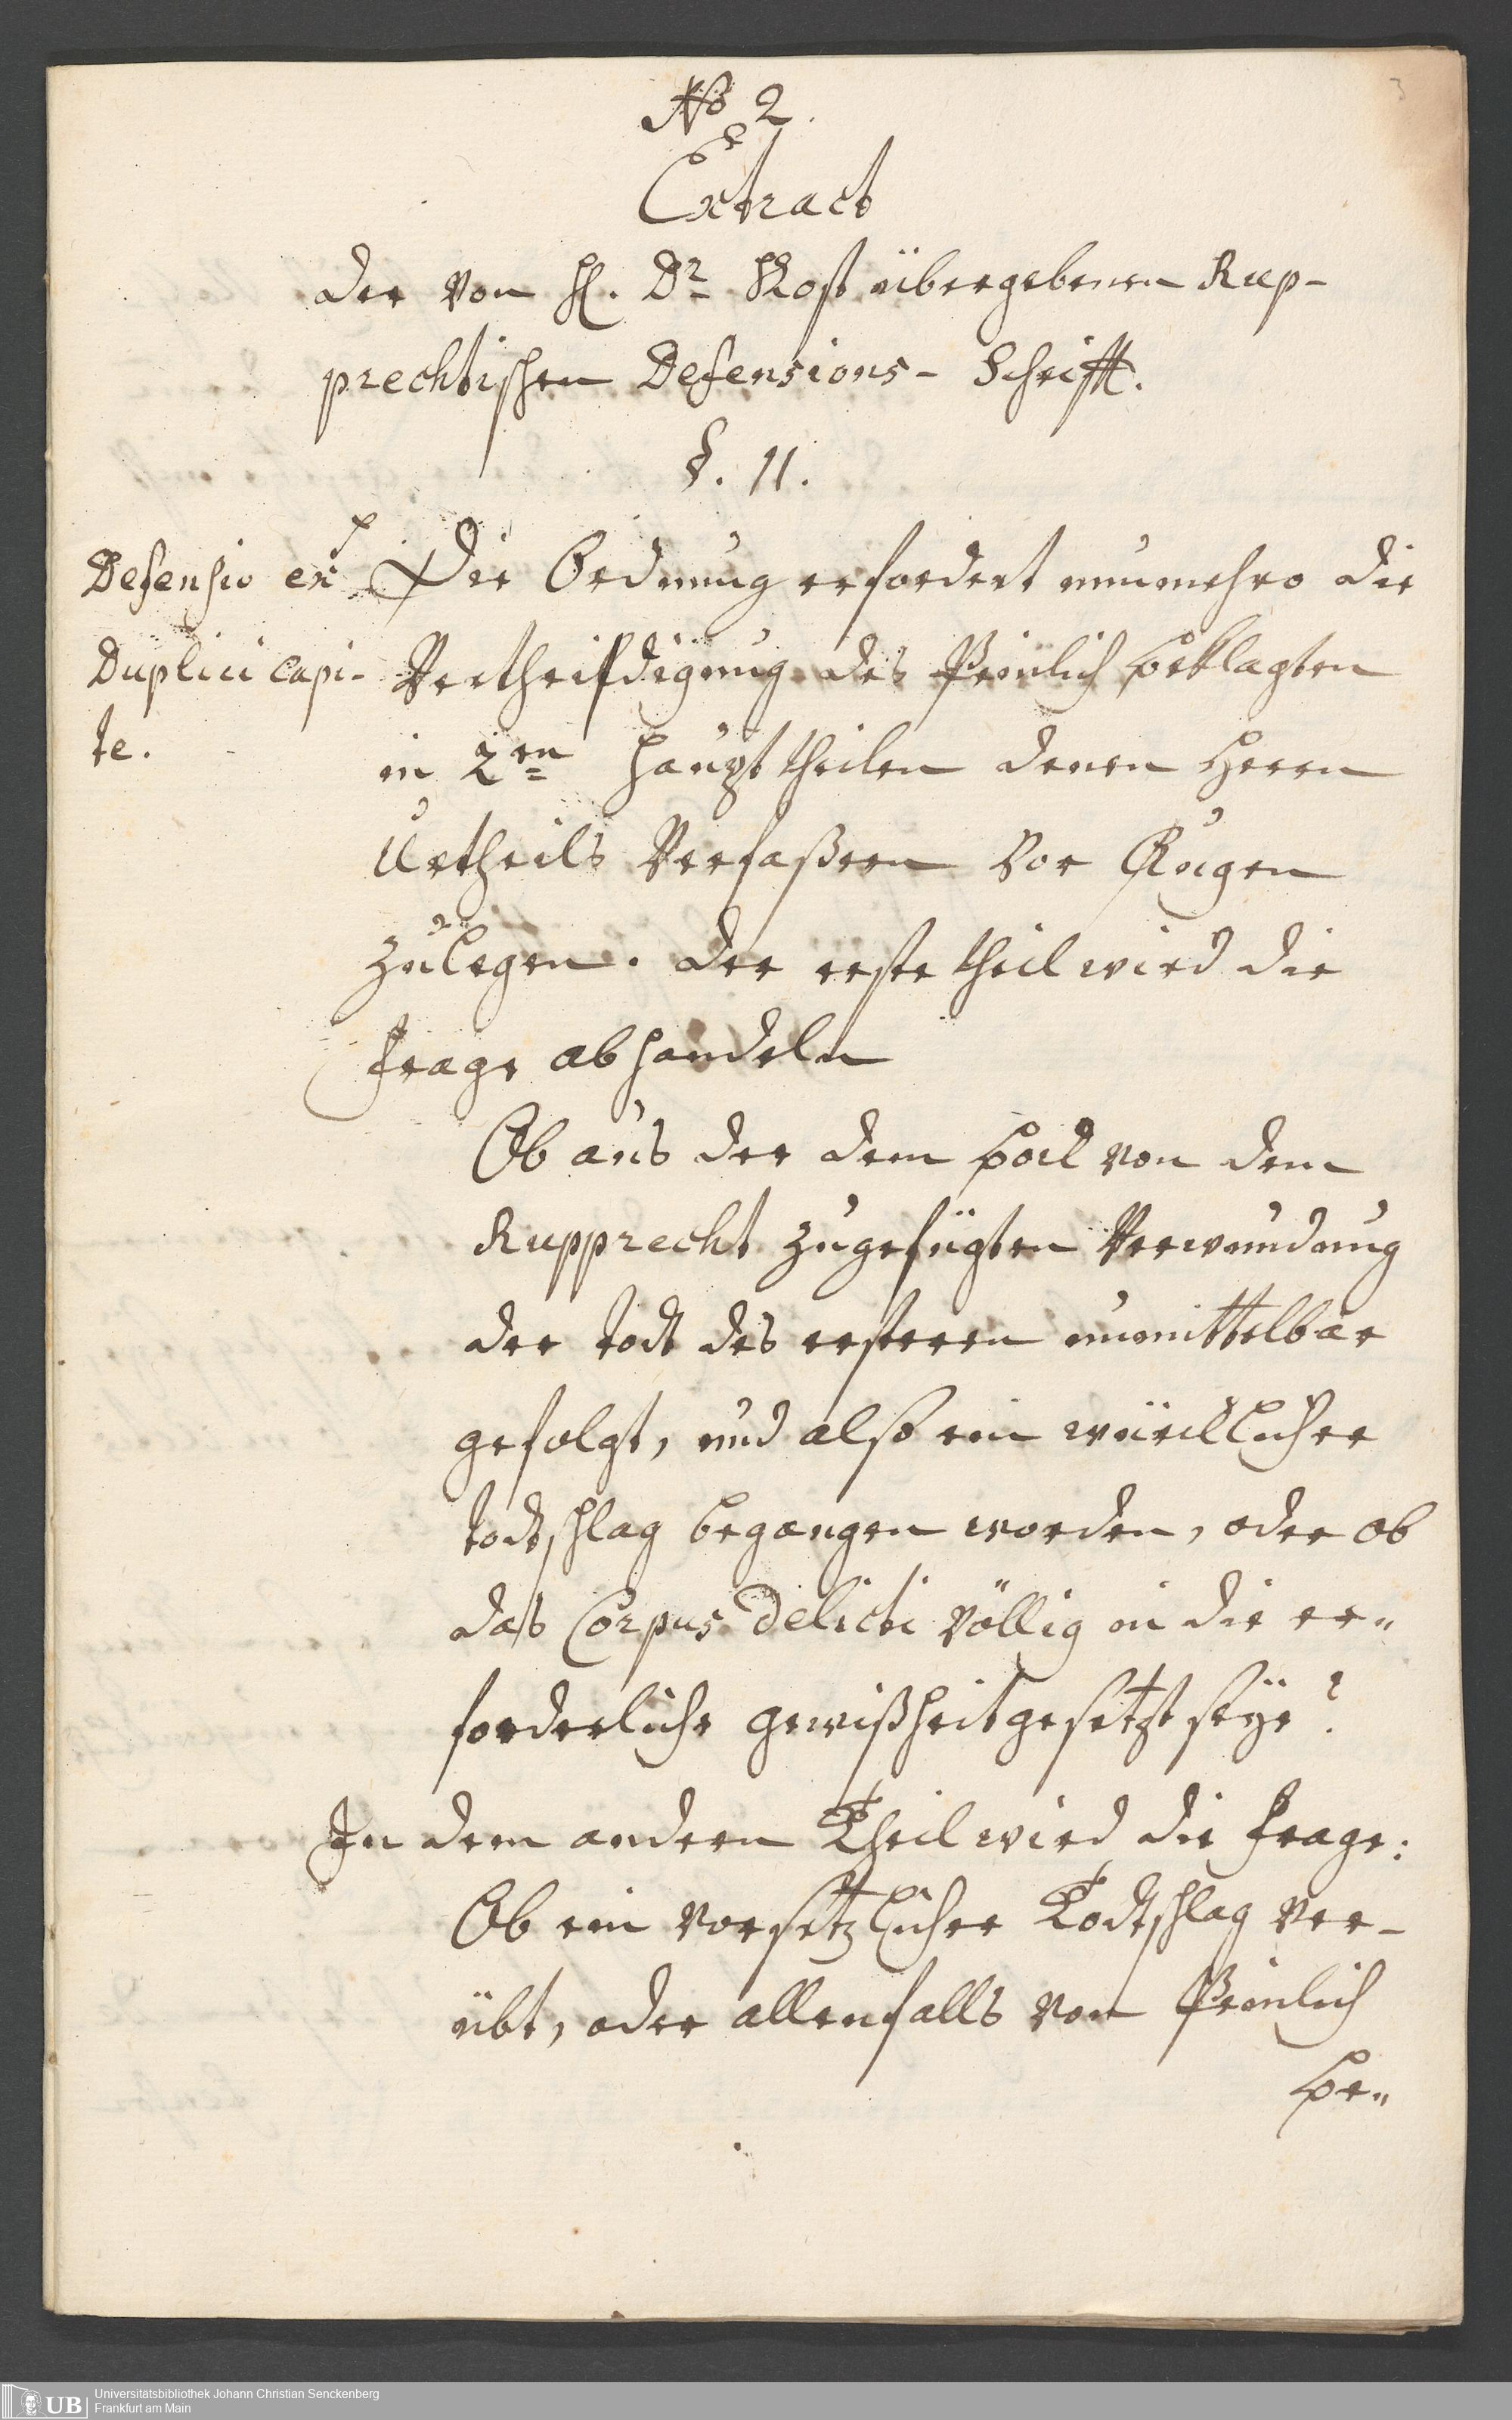 3
No 2.
Extract
der von H. Dr. Kost übergebenen Rup-
prechtischen Defensions-Schrifft.
§. 11.
Defensio ex
Duplici capi-
te.
Die Ordnung erfordert nunmehro die
Vertheidigung des Peinlich Beklagten
in 2en Haupt theilen denen Herrn
Urtheils Verfaßern vor Augen
zulegen. der erste theil wird die
Frage abhandeln
Ob aus der dem von dem
Rupprecht zugefügten Verwundung
der todt des ersteren unmittelbar
gefolgt, und also ein würcklicher
todtschlag begangen worden, oder ob
das Corpus Delicti völlig in die er„
forderliche gewißheit gesetzt seÿe?
In dem andern Theil wird die Frage:
Ob ein vorsetzlicher Todtschlag ver-
übt, oder allenfalls von Peinlich
Be„
UB
Universitätsbibliothek Johann Christian Senckenberg
Frankfurt am Main